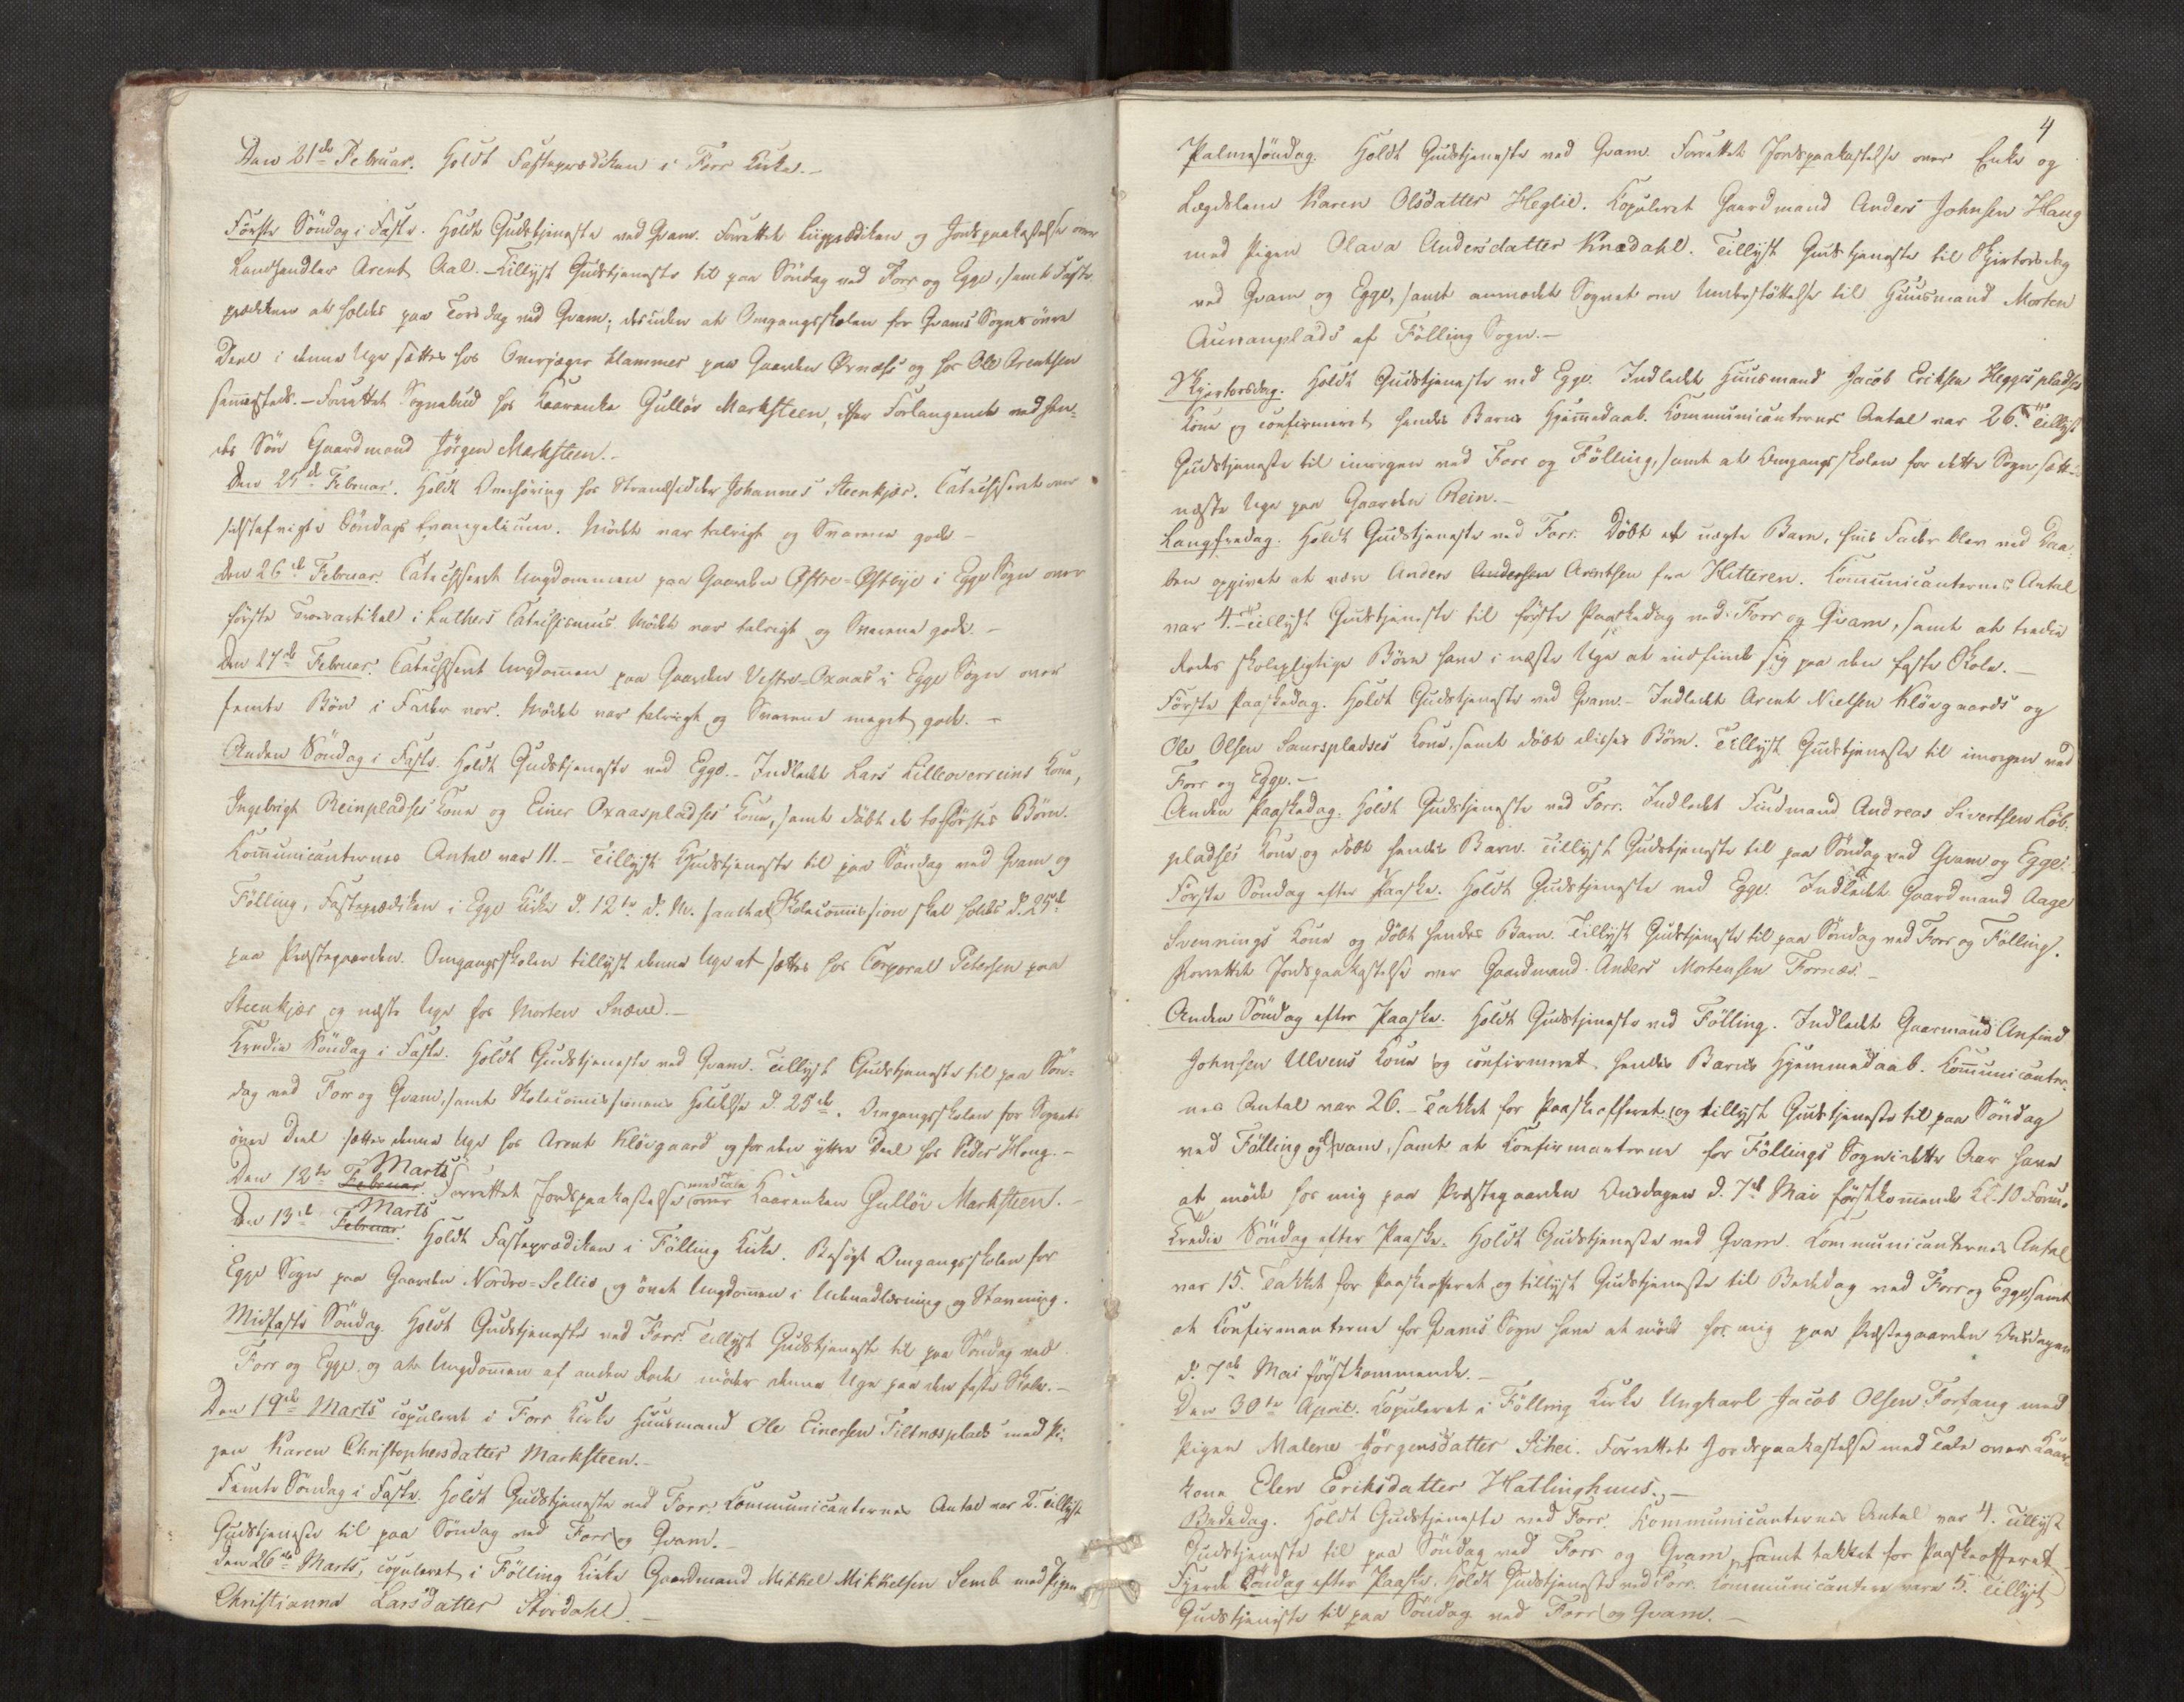 Den 21de Februar. Holdt Fasteprædiken i Forr Kirke. –
Første Söndag i Faste. Holdt Gudstjeneste ved Qvam. Forrettet Liigprædiken og Jordpaakastelse over
Landhandler Arent Aal. – Tillyst Gudstjeneste til paa Söndag ved Forr og Egge, samt Faste-
prædiken at holdes paa Torsdag ved Qvam; desuden at Omgangsskolen for Qvams Sogns övre
Deel i denne Uge sættes hos Overjæger Klammer paa Gaarden Ørnæss og hos Ole Arentsen
sammesteds. – Forrettet Sognebud hos Kaarenke Gullöv Marksteen, efter Forlangende ved hen-
des Sön Gaardmand Jörgen Marksteen. –
Den 25de Februar. Holdt Overhöring hos Strandsidder Johannes Steenkjær. Catechiseret over
sidstafvigte Söndags Evangelium. Mödet var talrigt og Svarene gode –
Den 26de Februar. Catechiseret Ungdommen paa Gaarden Østre-Østbye i Egge Sogn over
første Troesartikel i Luthers Catechismus. Mödet var talrigt og Svarene gode. –
Den 27de Februar. Catechiseret Ungdommen paa Gaarden Vestre-Oxaas i Egge Sogn over
femte Bön i Fader vor. Mödet var talrigt og Svarene meget gode. –
Anden Söndag i Faste. Holdt Gudstjeneste ved Egge. – Indledet Lars Lilleoverreins Kone,
Ingebrigt Reinpladses Kone og Einer Oxaaspladses Kone, samt döbt de to förstes Börn.
Kommunicanternes Antal var 11. – Tillyst Gudstjeneste til paa Söndag ved Qvam og
Fölling, Fasteprædiken i Egge Kirke d. 12te d. M. samt at Skolecommission skal holdes d. 25de
paa Præstegaarden. Omgangsskolen tillyst denne Uge at sættes hos Corporal Petersen paa
Steenkjær og næste Uge hos Morten Snæve. –
Tredie Söndag i Faste. Holdt Gudstjeneste ved Qvam. Tillyst Gudstjeneste til paa Sön-
dag ved Forr og Qvam, samt Skolecommissionens Holdelse d. 25de. Omgangsskolen for Sognets
övre Deel sættes denne Uge hos Arent Klövgaard og for den yttre Deel hos Peder Haug. –
Den 12te Februar Marts Forrettet Jordpaakastelse med Tale over Kaarenken Gullöv Marksteen. –
Den 13de Februar. Marts Holdt Fasteprædiken i Fölling Kirke. Besögt Omgangsskolen for
Egge Sogn paa Gaarden Nordre-Sellie og övet Ungdommen i Udenadlæsning og Stavning.
Midfaste Söndag. Holdt Gudstjeneste ved Forr. Tillyst Gudstjeneste til paa Söndag ved
Forr og Egge, og at Ungdommen af anden Rode möder denne Uge paa den faste Skole. –
Den 19de Marts copuleret i Forr Kirke Huusmand Ole Einersen Tiltnæsplads med Pi-
gen Karen Christophersdatter Marksteen. –
Femte Söndag i Faste. Holdt Gudstjeneste ved Forr. Kommunicanternes Antal var 2. Tillyst
Gudstjeneste til paa Söndag ved Forr og Qvam. –
Den 26de Marts, copuleret i Fölling Kirke Gaardmand Mikkel Mikkelsen Semb med Pigen
Christianna Larsdatter Stordahl. –
4
Palmesöndag. Holdt Gudstjeneste ved Qvam. Forrettet Jordpaakastelse over Enke og
Lægdelem Karen Olsdatter Heglie. Kopuleret Gaardmand Anders Johnsen Haug
med Pigen Olava Andersdatter Knædahl. Tillyst Gudstjeneste til Skjertorsdag
ved Qvam og Egge, samt anmodet Sognet om Understöttelse til Huusmand Morten
Aunanplads af Fölling Sogn. –
Skjertorsdag. Holdt Gudstjeneste ved Egge. Indledet Huusmand Jacob Eriksen Heggespladses
Kone og confirmeret hendes Barns Hjemmedaab. Kommunicanternes Antal var 26. Tillyst
Gudstjeneste til imorgen ved Forr og Fölling, samt at Omgangsskolen for dette Sogn sættes
næste Uge paa Gaarden Rein. –
Langfredag. Holdt Gudstjeneste ved Forr. Döbt et uægte Barn, hvis Fader blev ved Daa-
ben opgivet at være Anders Andersen Arentsen fra Hitteren. Kommunicanternes Antal
var 4. Tillyst Gudstjeneste til første Paaskedag ved Forr og Qvam, samt at tredie
Rodes skolepligtige Börn have i næste Uge at indfinde sig paa den faste Skole. –
Første Paaskedag. Holdt Gudstjeneste ved Qvam. – Indledet Arent Nielsen Klövgaards og
Ole Olsen Saurspladses Kone, samt döbt disses Börn. Tillyst Gudstjeneste til imorgen ved
Forr og Egge. –
Anden Paaskedag. Holdt Gudstjeneste ved Forr. Indledet Findmand Andreas Sivertsen Löb-
pladses Kone og döbt hendes Barn. Tillyst Gudstjeneste til paa Söndag ved Qvam og Egge.
Første Söndag efter Paaske. Holdt Gudstjeneste ved Egge. Indledet Gaardmand Aage
Svennings Kone og döbt hendes Barn. Tillyst Gudstjeneste til paa Söndag ved Forr og Fölling.
Forrettet Jordpaakastelse over Gaardmand Anders Mortensen Fornæs. –
Anden Söndag efter Paaske. Holdt Gudstjeneste ved Fölling. Indledet Gaarmand Anfind
Johnsen Ulvens Kone og confirmeret hendes Barns Hjemmedaab. Kommunicanter-
nes Antal var 26. – Takket for Paaskeofferet og tillyst Gudstjeneste til paa Söndag
ved Fölling og Qvam, samt at Konfirmanterne for Föllings Sogn i dette Aar have
at möde hos mig paa Præstegaarden Onsdagen d. 7de Mai förstkommende Kl. 10 Form.
Tredie Söndag efter Paaske. Holdt Gudstjeneste ved Qvam. Kommunicanternes Antal
var 15. Takket for Paaskeofferet og tillyst Gudstjeneste til Bededag ved Forr og Egge, samt
at Konfirmanterne for Qvams Sogn have at möde hos mig paa Præstegaarden Onsdagen
d. 7de Mai förstkommende. –
Den 30te April. Kopuleret i Fölling Kirke Ungkarl Jacob Olsen Forfang med
Pigen Malene Jörgensdatter Schei. Forrettet Jordpaakastelse med Tale over Kaar-
kone Elen Eriksdatter Hatlinghuus. –
Bededag. Holdt Gudstjeneste ved Forr. Kommunicanternes Antal var 4. Tillyst
Gudstjeneste til paa Söndag ved Forr og Qvam, samt takket for Paaskeofferet. –
Fjerde Söndag efter Paaske. Holdt Gudstjeneste ved Forr. Communicantere vare 5. Tillyst
Gudstjeneste til paa Söndag ved Forr og Qvam. –